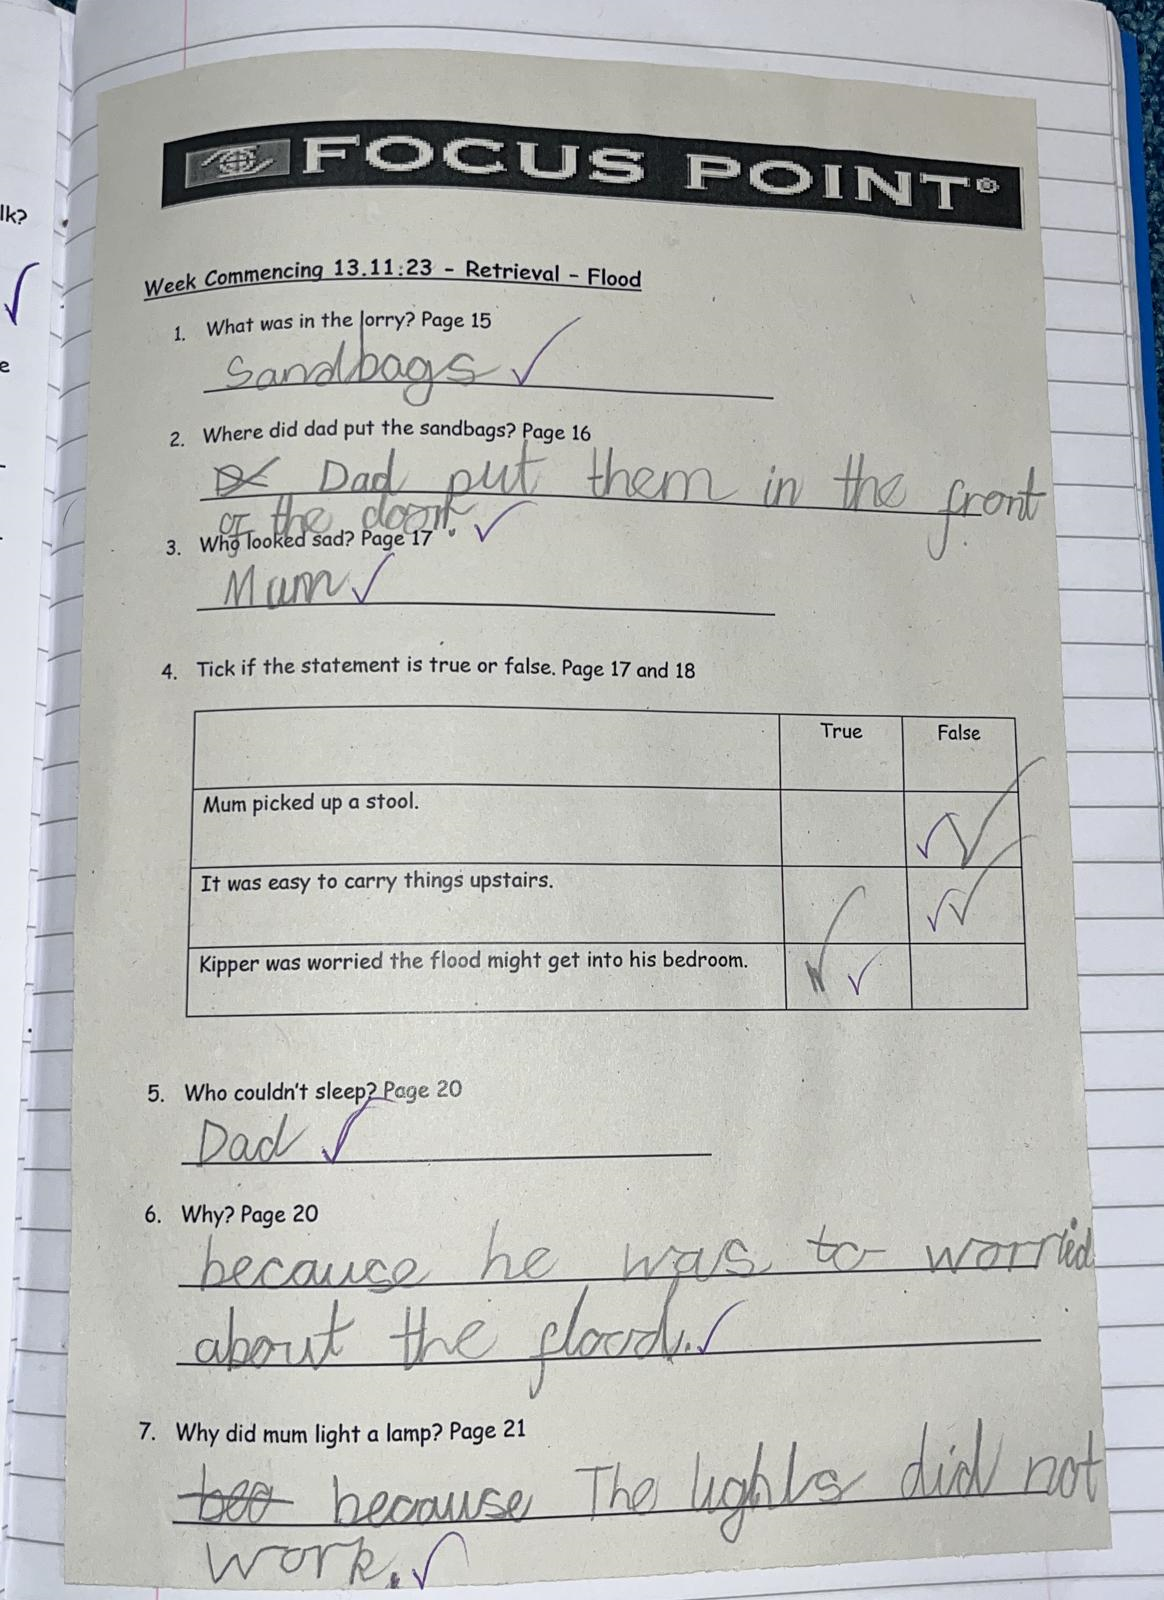 lk?
e
FOCUS POINT®
Week Commencing 13.11.23 - Retrieval - Flood
1. What was in the lorry? Page 15
Sandbags
2. Where did dad put the sandbags? Page 16
Dad put them in the front
of the door.
3. Who looked sad? Page 17
Mum
4. Tick if the statement is true or false. Page 17 and 18
True False
Mum picked up a stool.
It was easy to carry things upstairs.
Kipper was worried the flood might get into his bedroom.
5. Who couldn't sleep? Page 20
Dad
6. Why? Page 20
because he was to worried
about the flood.
7. Why did mum light a lamp? Page 21
beo because The lights did not
work.